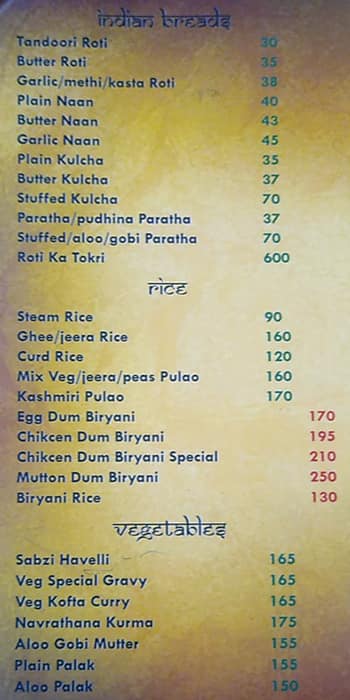 indian breads
Tandoori Roti 30
Butter Roti 35
Garlic/methi/kasta Roti 38
Plain Naan 40
Butter Naan 43
Garlic Naan 45
Plain Kulcha 35
Butter Kulcha 37
Stuffed Kulcha 70
Paratha/pudhina Paratha 37
Stuffed/aloo/gobi Paratha 70
Roti Ka Tokri 600
rice
Steam Rice 90
Ghee/jeera Rice 160
Curd Rice 120
Mix Veg/jeera/peas Pulao 160
Kashmiri Pulao 170
Egg Dum Biryani 170
Chikcen Dum Biryani 195
Chikcen Dum Biryani Special 210
Mutton Dum Biryani 250
Biryani Rice 130
vegetables
Sabzi Havelli 165
Veg Special Gravy 165
Veg Kofta Curry 165
Navrathana Kurma 175
Aloo Gobi Mutter 155
Plain Palak 155
Aloo Palak 150